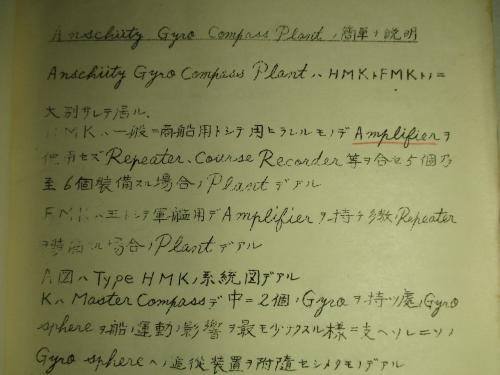 Anschüty Gyro Compass Plant ノ簡單ナ説明
Anschüty Gyro Compass Plant ハ HMKトFMKトノニ
大別サレテ居ル.
HMKハ一般ニ商船用トシテ用ヒラレルモノデ Amplifier ヲ
使用セズ Repeater、Course Recorder 等ヲ合セ5個乃
至6個装備スル場合ノ Plant デアル
FMKハ主トシテ軍艦用デ Amplifier ヲ持チ多数ノ Repeater
ヲ装備スル場合ノ Plant デアル
A図ハ Type HMKノ系統図デアル
Kハ Master Compass デ中ニ2個ノ Gyro ヲ持ツ處ノ Gyro
sphere ヲ船ノ運動ノ影響ヲ最モ少ックスル様ニ支ヘソレニソノ
Gyro sphere ヘノ追従装置ヲ附隨セシメタモノデアル